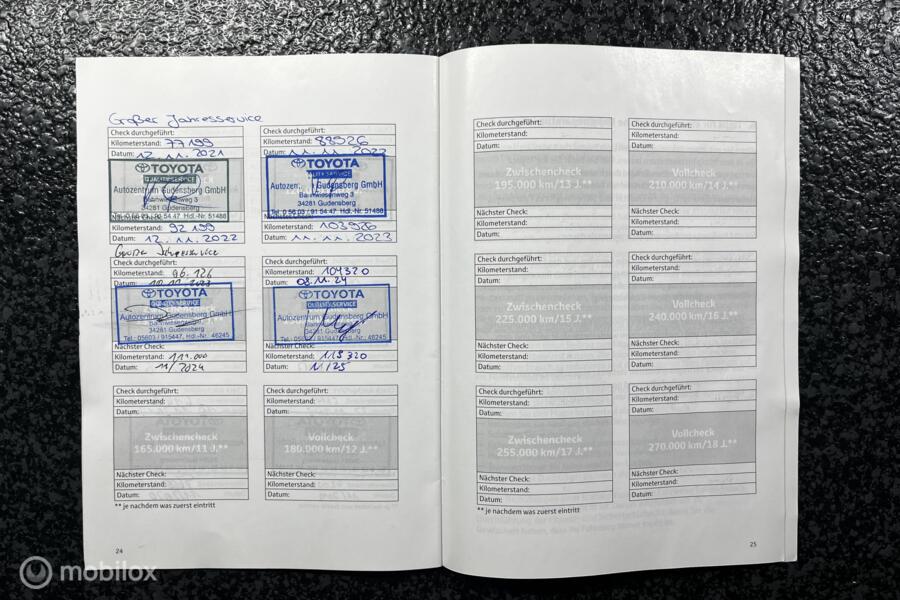 Großer Jahresservice
Check durchgeführt:
Kilometerstand: 77199
Datum: 12.11.2021
TOYOTA
QUALITY SERVICE
Autozentrum Gudensberg GmbH
Bahnwiesenweg 3
34281 Gudensberg
Tel. 0 56 03 / 91 54 47 Hdl.-Nr. 51488
Nächster Check:
Kilometerstand: 92199
Datum: 12.11.2022
Check durchgeführt:
Kilometerstand: 88926
Datum: 11.11.2022
TOYOTA
QUALITY SERVICE
Autozen Gudensberg GmbH
Bahnwiesenweg 3
34281 Gudensberg
Tel. 0 56 03 / 91 54 47 Hdl.-Nr. 51488
Nächster Check:
Kilometerstand: 103926
Datum: 11.11.2023
Großer Jahresservice
Check durchgeführt:
Kilometerstand: 96.126
Datum:
TOYOTA
QUALITY SERVICE
Autozentrum Gudensberg GmbH
Bahnwiesenweg 3
34281 Gudensberg
Tel.: 05603 / 915447, Hdl.-Nr. 46245
Nächster Check:
Kilometerstand: 111.000
Datum: 11/2024
Check durchgeführt:
Kilometerstand: 104320
Datum: 08.11.24
TOYOTA
QUALITY SERVICE
Autozentrum Gudensberg GmbH
Bahnwiesenweg 3
34281 Gudensberg
Tel.: 05603 / 915447, Hdl.-Nr. 46245
Nächster Check:
Kilometerstand: 119320
Datum: 11/25
Check durchgeführt:
Kilometerstand:
Datum:
Zwischencheck
165.000 km/11 J.**
Nächster Check:
Kilometerstand:
Datum:
Check durchgeführt:
Kilometerstand:
Datum:
Vollcheck
180.000 km/12 J.**
Nächster Check:
Kilometerstand:
Datum:
** je nachdem was zuerst eintritt
24
Check durchgeführt:
Kilometerstand:
Datum:
Zwischencheck
195.000 km/13 J.**
Nächster Check:
Kilometerstand:
Datum:
Check durchgeführt:
Kilometerstand:
Datum:
Vollcheck
210.000 km/14 J.**
Nächster Check:
Kilometerstand:
Datum:
Check durchgeführt:
Kilometerstand:
Datum:
Zwischencheck
225.000 km/15 J.**
Nächster Check:
Kilometerstand:
Datum:
Check durchgeführt:
Kilometerstand:
Datum:
Vollcheck
240.000 km/16 J.**
Nächster Check:
Kilometerstand:
Datum:
Check durchgeführt:
Kilometerstand:
Datum:
Zwischencheck
255.000 km/17 J.**
Nächster Check:
Kilometerstand:
Datum:
Check durchgeführt:
Kilometerstand:
Datum:
Vollcheck
270.000 km/18 J.**
Nächster Check:
Kilometerstand:
Datum:
25
mobilox